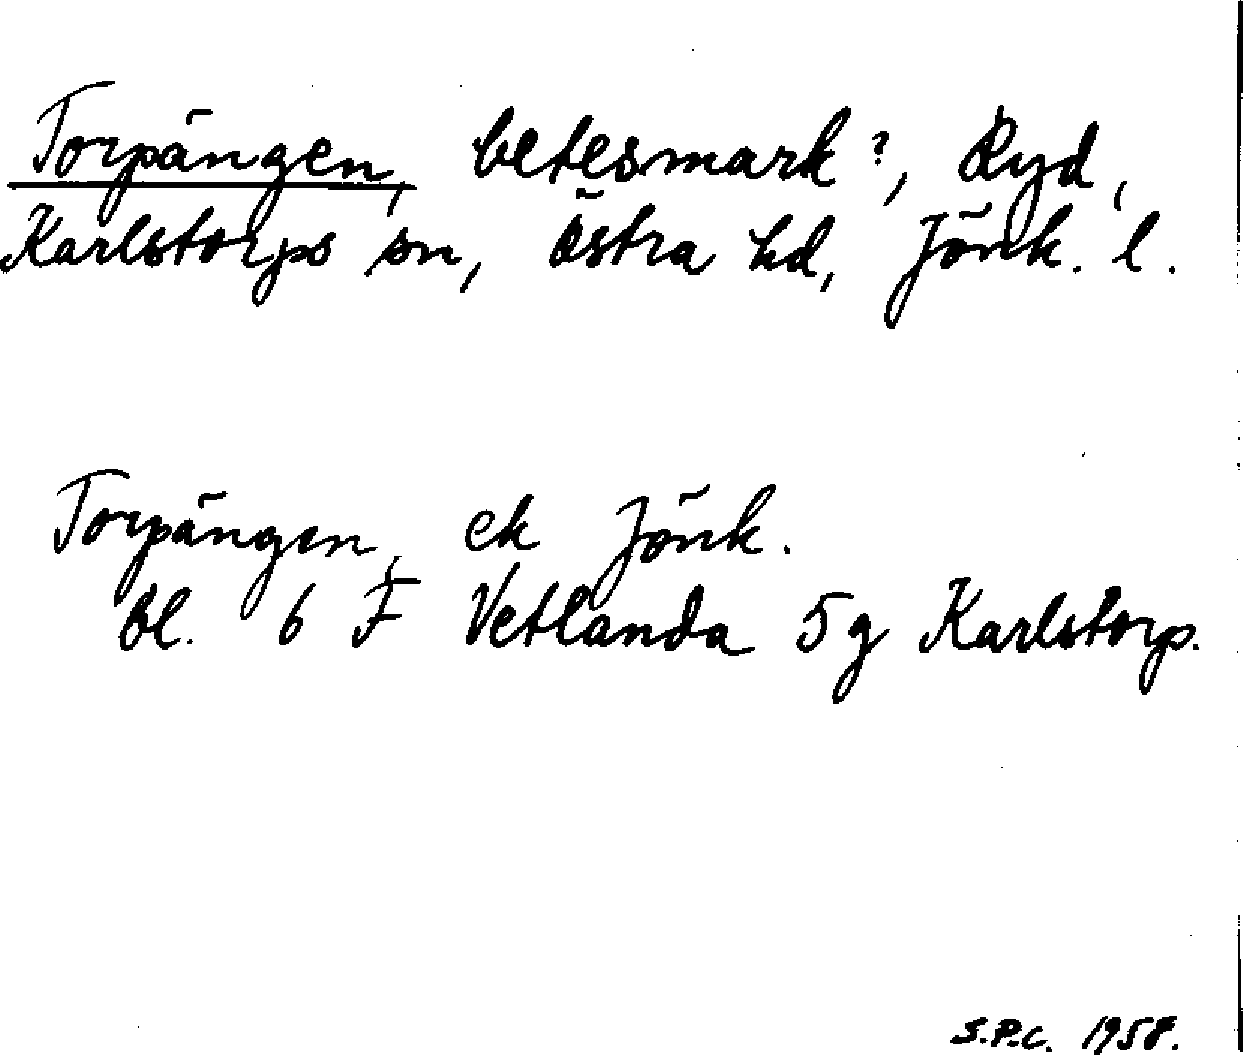 Torpängen, betesmark?, Ryd,
Karlstorps sn, Östra hd, Jönk. l.
Torpängen, ek Jönk.
Bl. 6 F Vetlanda 5g Karlstorp.
S.P.C. 1958.